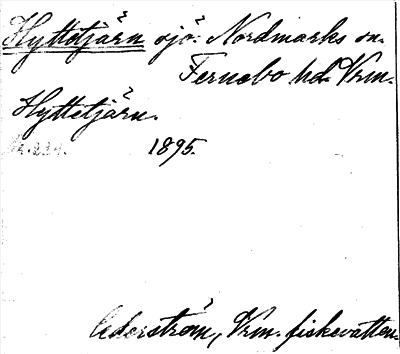 Hyttetjärn sjö: Nordmarks sn.
Fernebo hd. Vrm.
Hyttetjärn.
1895.
Cederström, Vrm. fiskevatten.